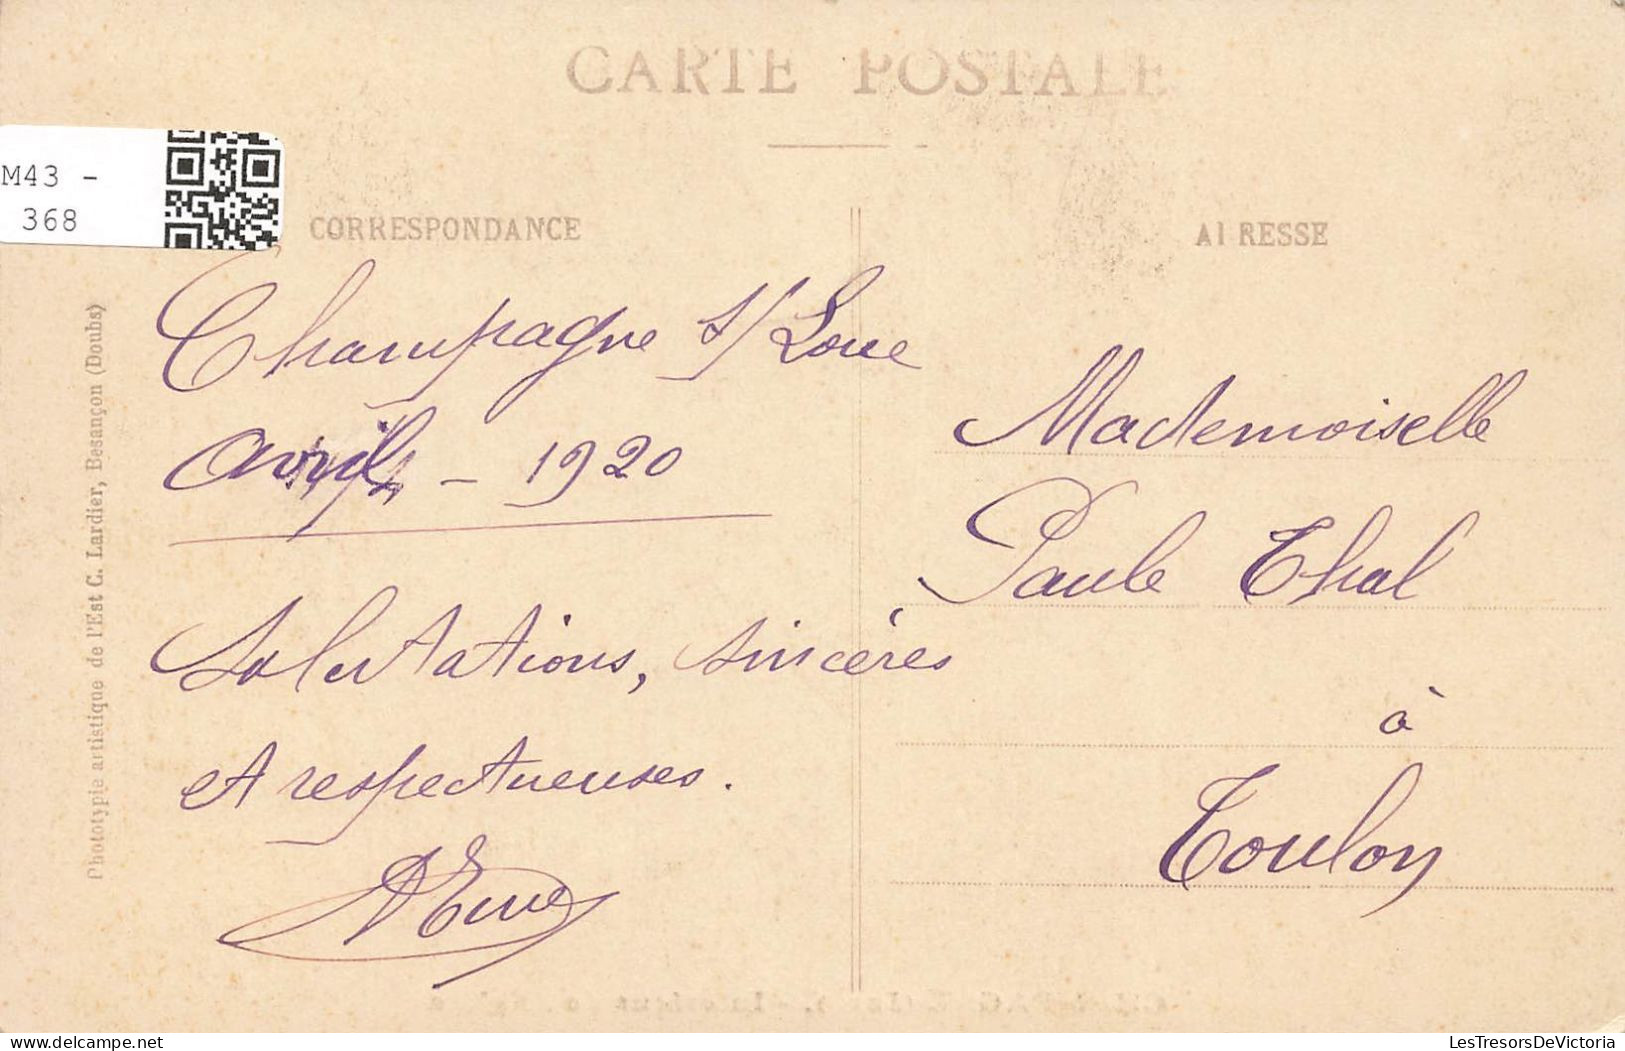 CARTE POSTALE
M43 -
368
CORRESPONDANCE
Champagne s/ Loue
Avril - 1920
Salutations, sincères
et respectueuses.
ADRESSE
Mademoiselle
Paule Thal
à
Toulon
Phototypie artistique de l'Est C. Lardier, Besançon (Doubs)
LesTresorsDeVictoria